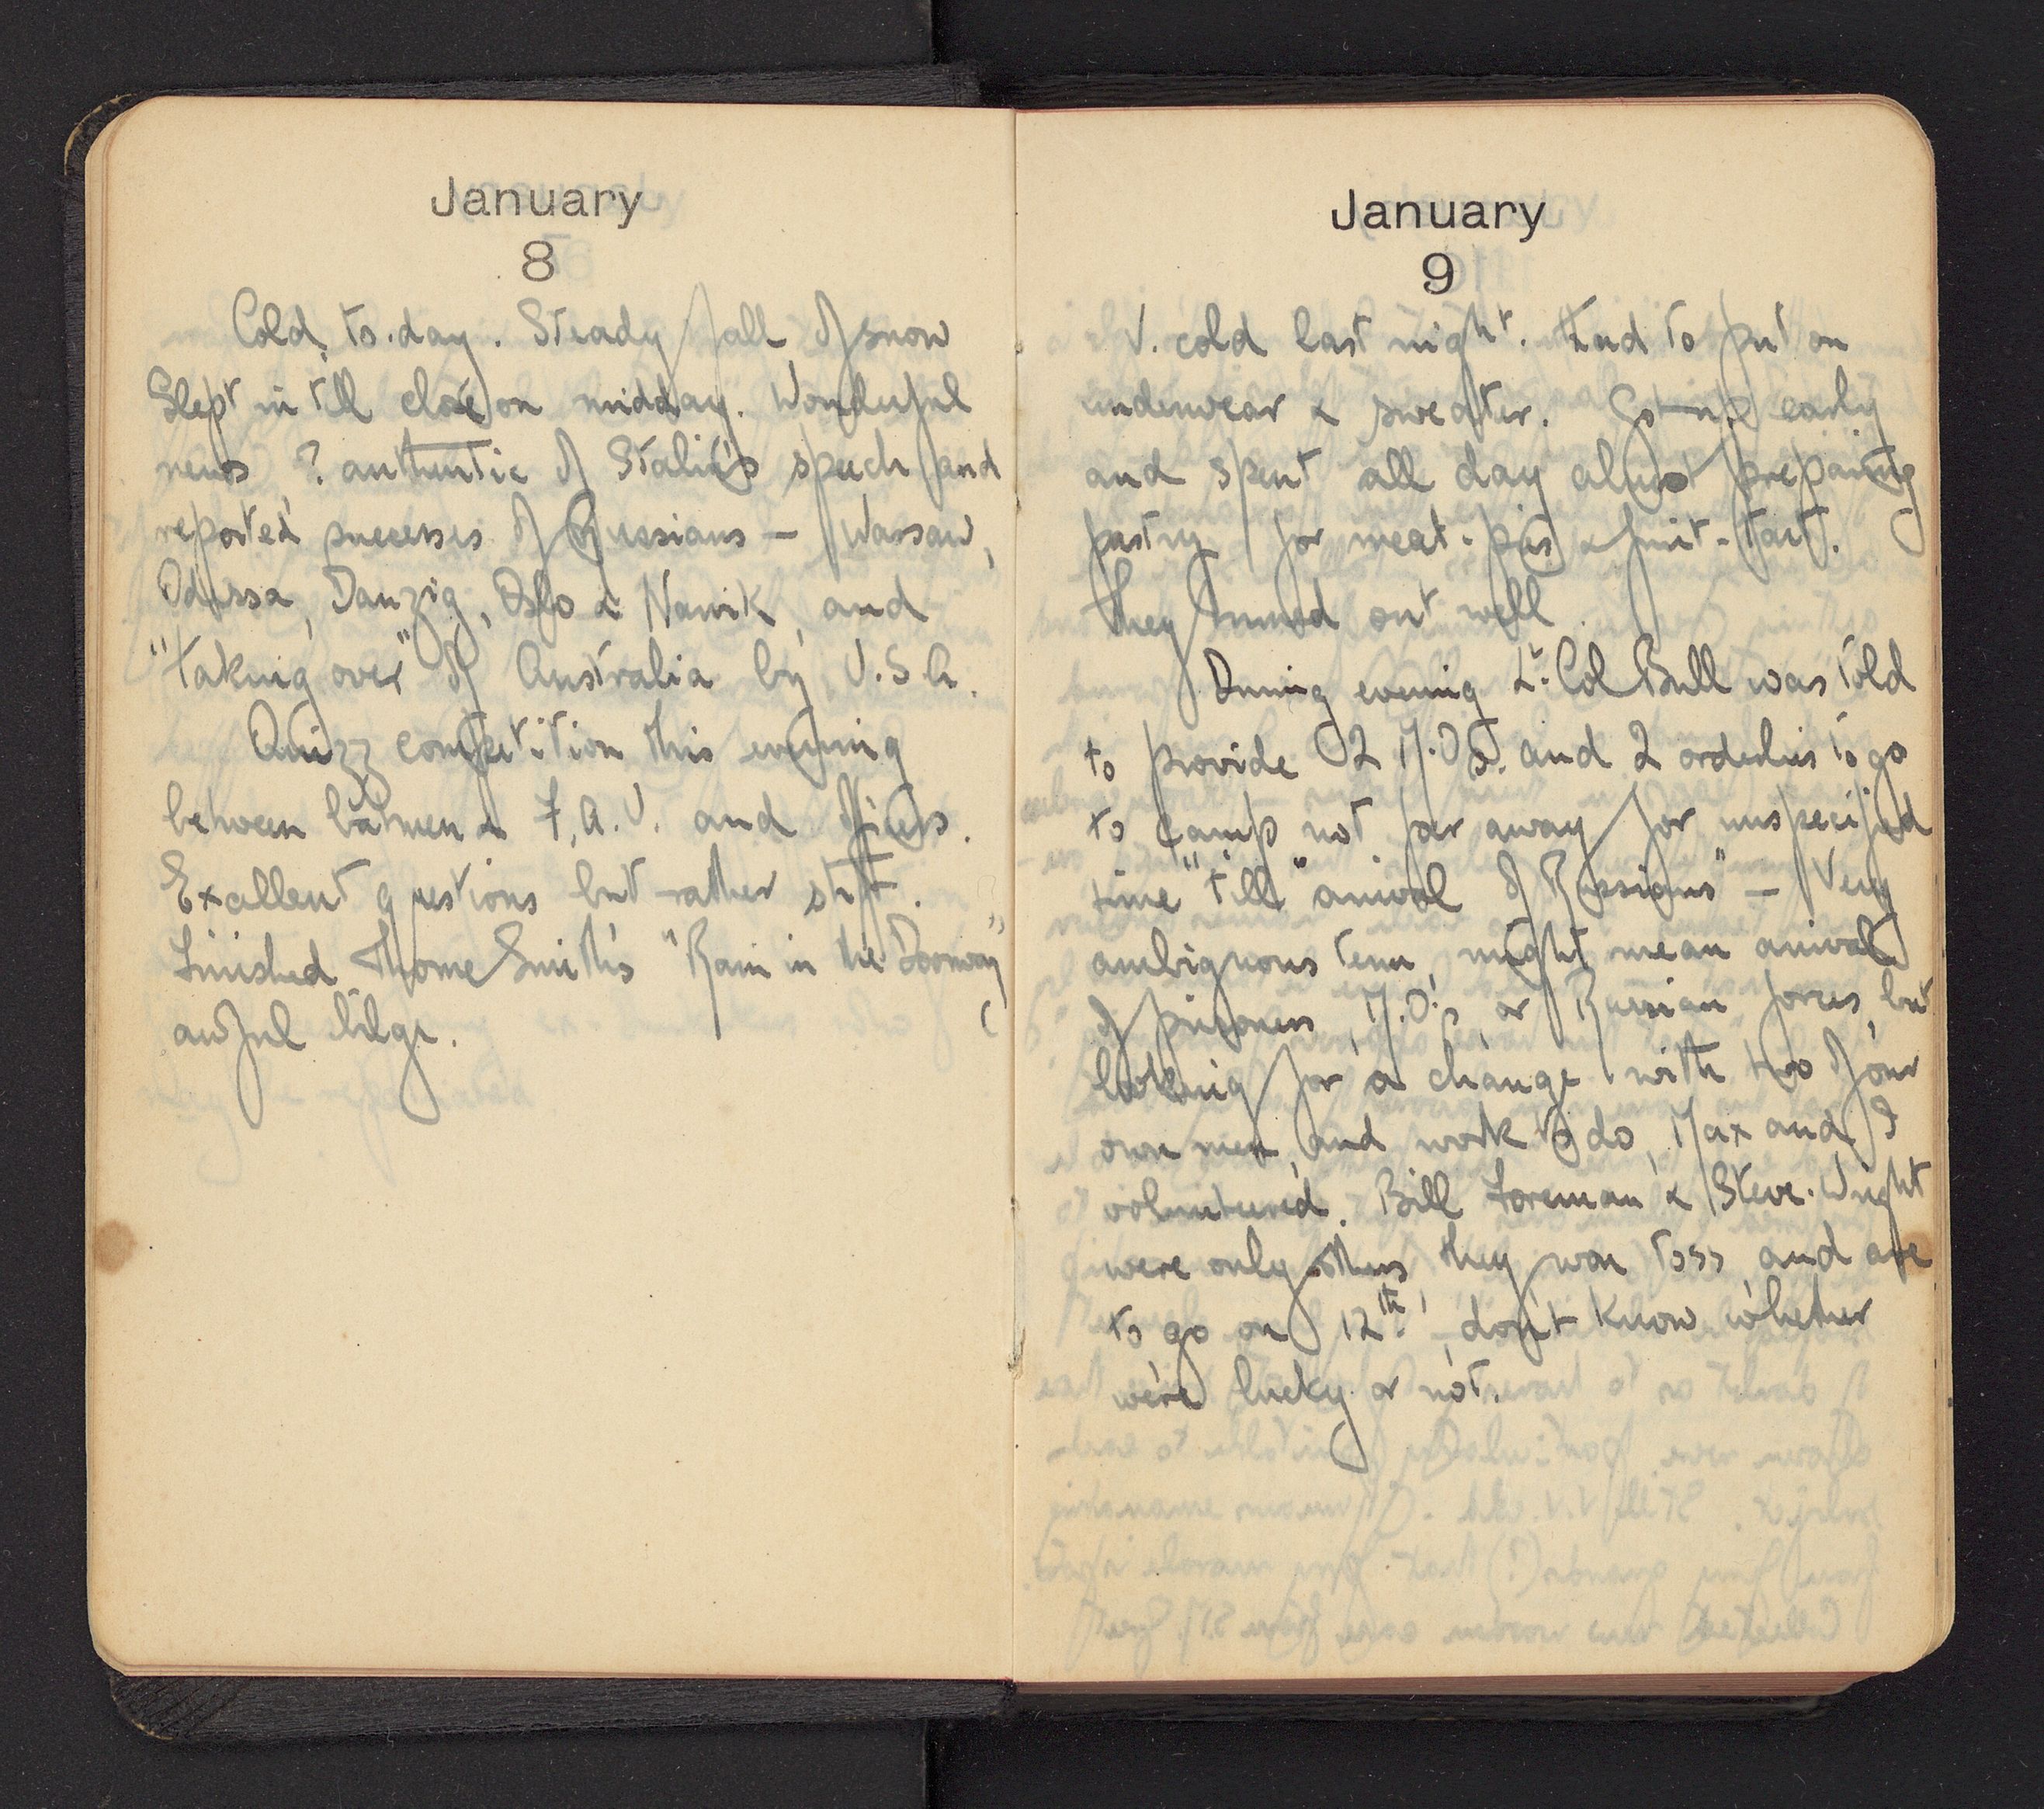 January
8
Cold to-day. Steady fall of snow
Slept in till close on midday. Wonderful
news ? authentic of Stalin's speech and
reported successes of Russians – Warsaw,
Odessa, Danzig, Oslo & Narvik, and
"taking over" of Australia by U.S.A.
Quizz competition this evening
between batmen & F.A.U. and officers.
Excellent questions but rather stiff.
Finished Thorne Smith's "Rain in the Doorway"
awful bilge.
January
9
V. cold last night. Had to put on
underwear & sweater. Got-up early
and spent all day almost preparing
pastry for meat-pies & fruit-tart.
They turned out well.
During evening Lt. Col Bull was told
to provide 2 M.O's. and 2 orderlies to go
to camp not far away for unspecified
time "till arrival of Russians" – Very
ambiguous term, might mean arrival
of prisoners, M.O.'s, or Russian forces, but
looking for a change with two of our
own men, and work to do, Max and I
volunteered. Bill Foreman & Steve Wright
were only others, they won toss and are
to go on 12th, don't know whether
we're lucky or not.